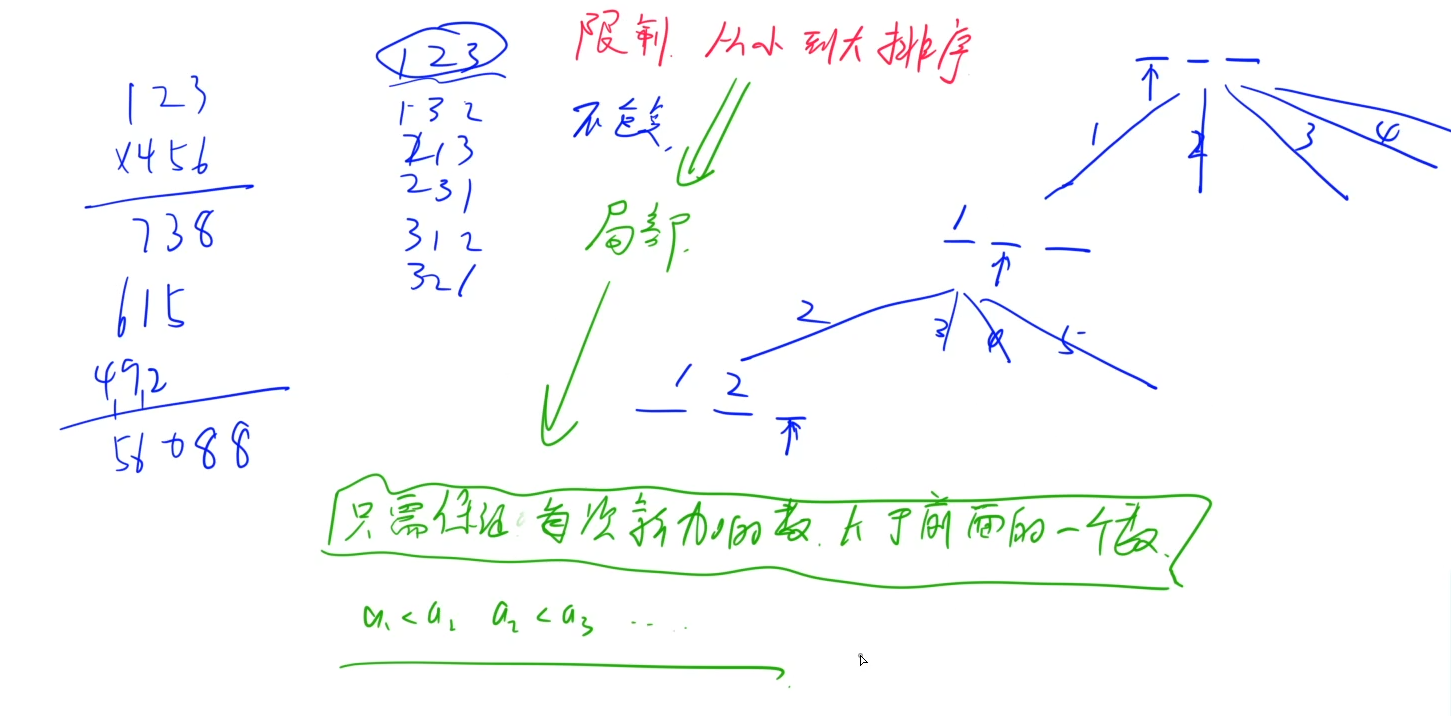 123
×456
738
615
492
56088
123
132
213
231
312
321
限制 从小到大排序
不包含
局部
1 2 3 4
1
2 3 4 5
1 2
只需保证 每次新加的数 大于前面的一个数
a₁<a₂ a₂<a₃ ....